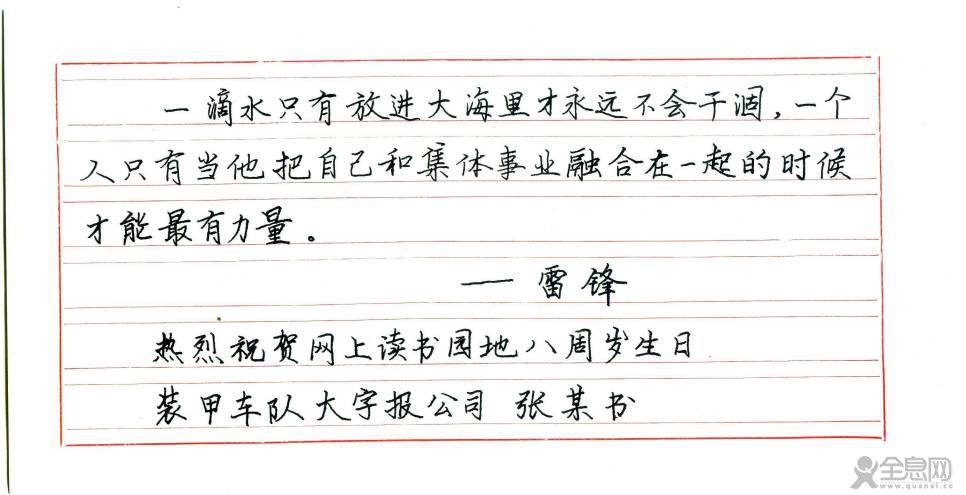 一滴水只有放进大海里才永远不会干涸，一个
人只有当他把自己和集体事业融合在一起的时候
才能最有力量。
—雷锋
热烈祝贺网上读书园地八周岁生日
装甲车队大字报公司 张某书
全息网
www.quanxi.cc